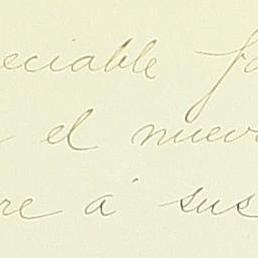 eciable fa
el nuevo
re á sus